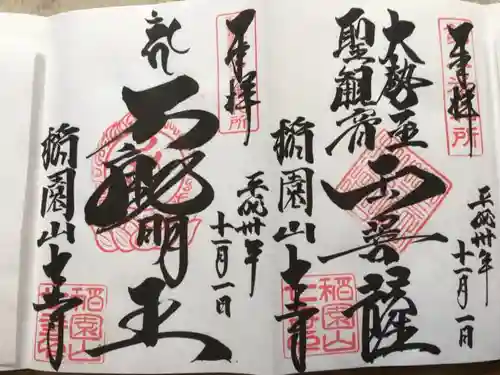 奉拝
平成卅年
十一月一日
大勢至
聖観音
菩薩
稲園山七寺
稲園山
奉拝
平成卅年
十一月一日
不動明王
稲園山七寺
稲園山